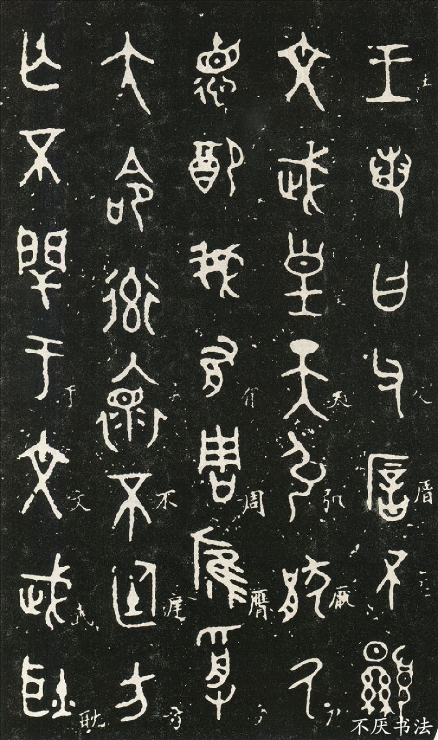 王若曰父厝不顯
文武皇天弘猒氒
德配我有周膺受
大命率懷不廷方
亡不閈于文武耿
不厌书法